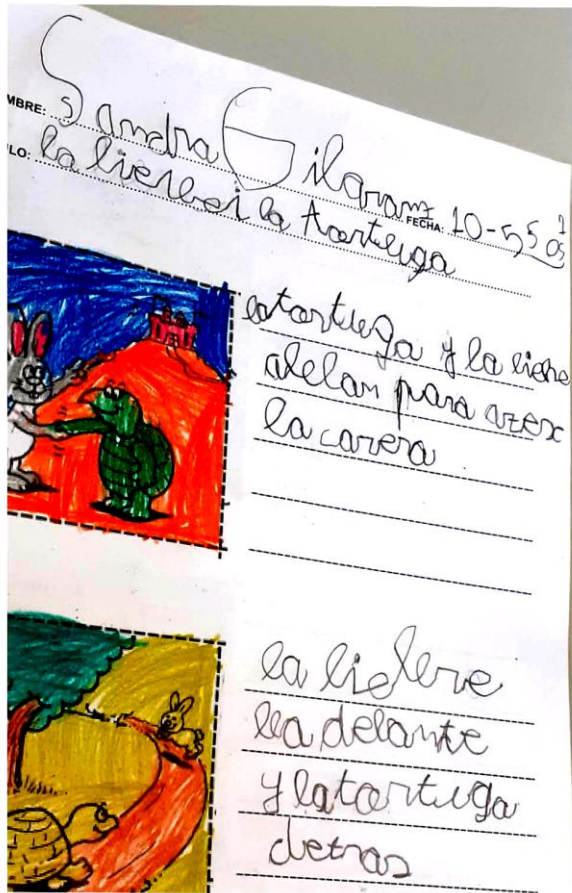 MBRE: Sandra Gilaranz FECHA: 10-5
LO: la liebre i la tortuga
la tortuga y la liebre
para azer
la carera
la liebre
ba delante
y la tortuga
detras